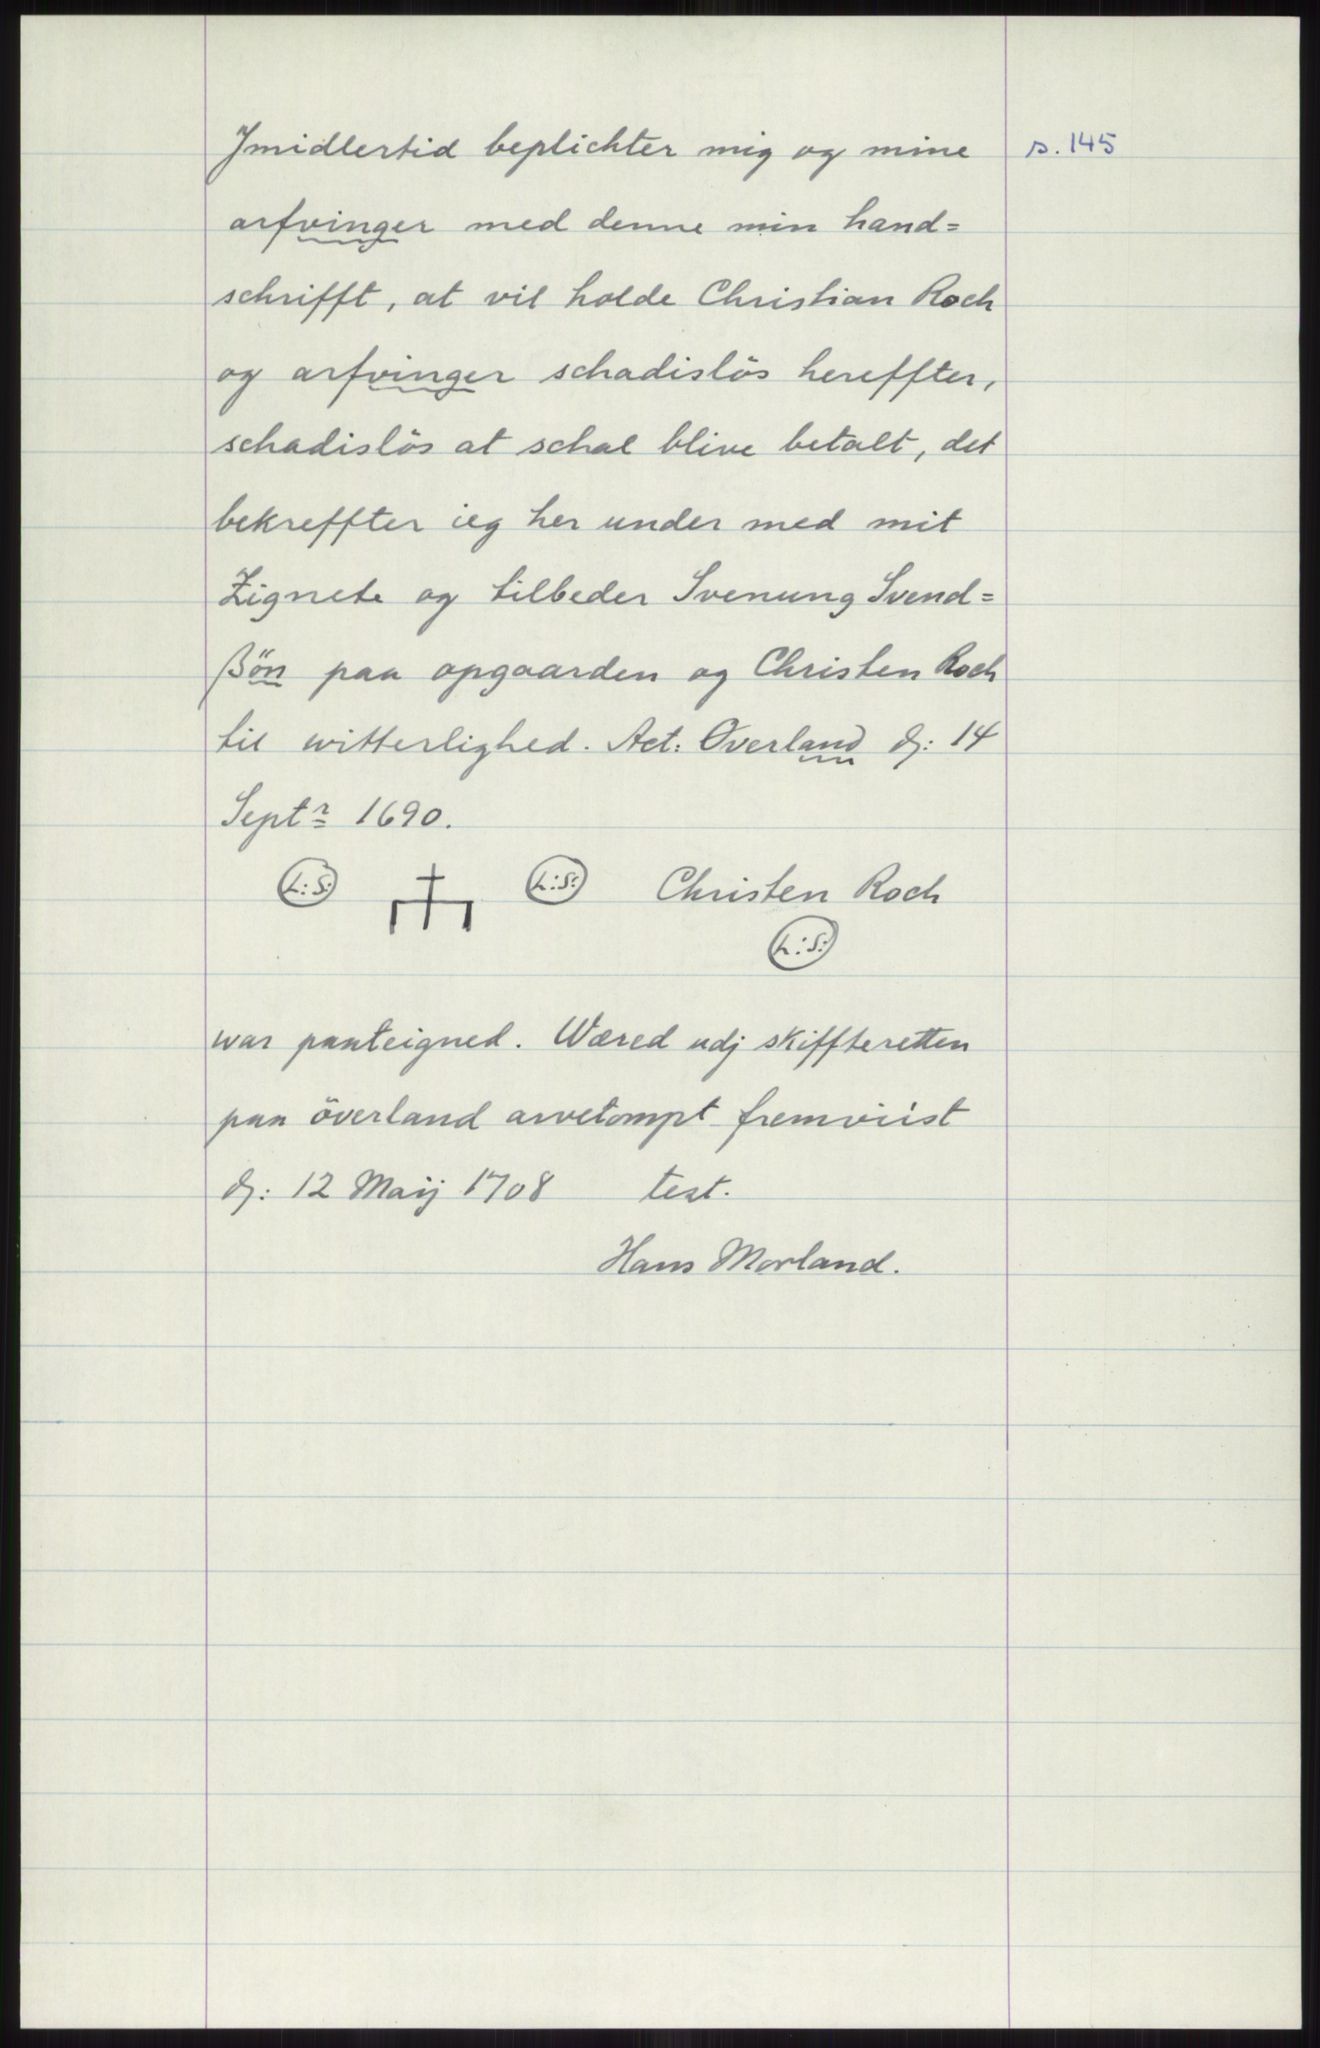 Jmidlertid beplichter mig og mine s. 145
arfvinger med denne min hand=
schrifft, at vil holde Christian Roch
og arfvinger schadislös hereffter,
schadislös at schal blive betalt, det
bekreffter ieg her under med mit
Zignete og tilbeder Svenung Svend=
ßön paa opgaarden og Christen Roch
til witterlighed. Act: Overland d: 14
Septr 1690.
L:S: L:S: Christen Roch
L:S:
war paateigned. Wæred udj skiffteretten
paa överland arvetompt fremviist
d: 12 Maij 1708 test.
Hans Morland.